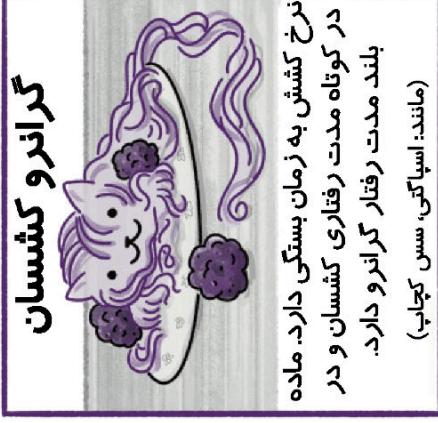 گرانرو کشسان
نرخ کشش به زمان بستگی دارد. ماده
در کوتاه مدت رفتاری کشسان و در
بلند مدت رفتار گرانرو دارد.
(مانند: اسپاگتی، سس کچاپ)